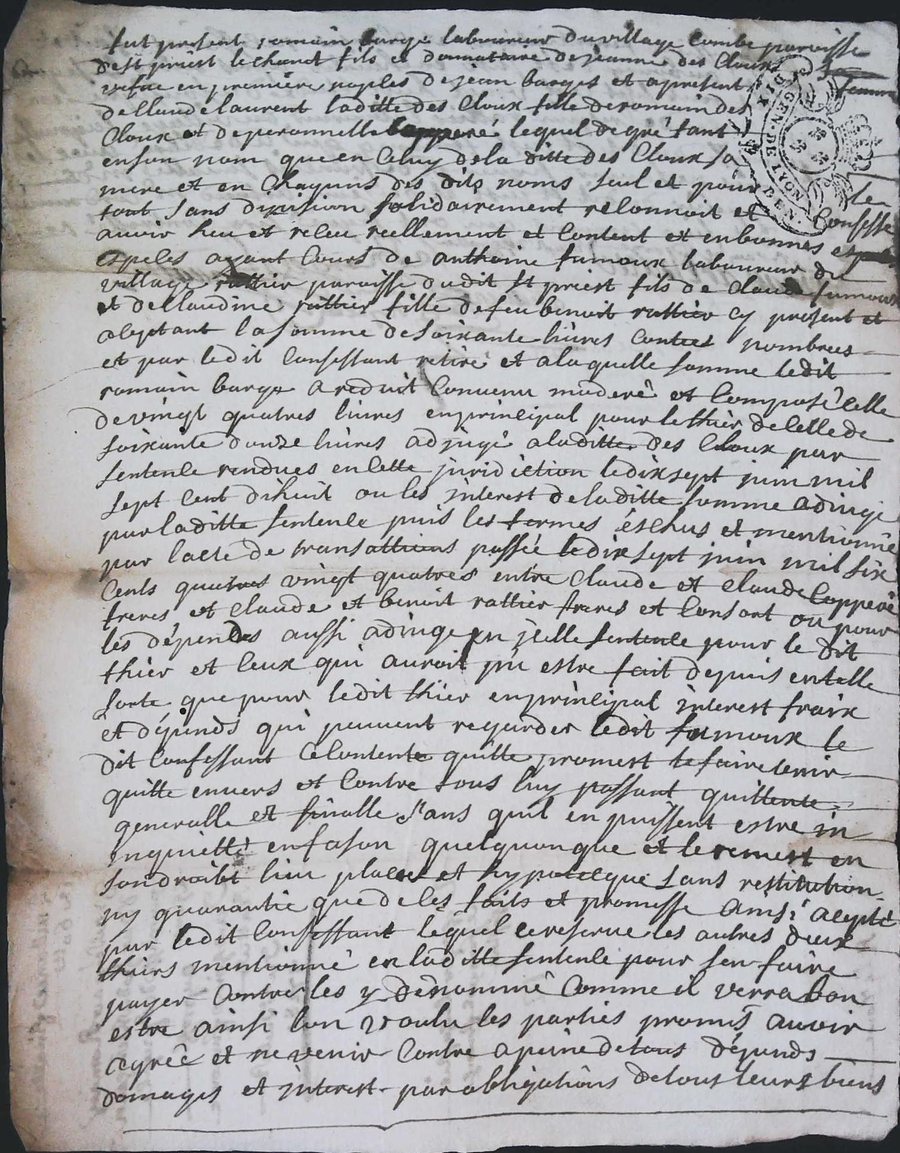 fut present romain barge laboureur du village Combe paroisse
de st priest le chanet fils et donnataire de jeanne des Cloux
vefue en première nopces de jean barges et apresent femme
de Claude laurent laditte des Cloux fille de romain des
Cloux et de peronnelle Copperé lequel de gré tant
en son nom que en Celuy de la ditte des Cloux sa
mere et en Chaquns des dits noms seul et pour le
tout sans division solidairement reConnoit et Confesse
auoir heu et receu reellement et Content et en bonnes
espeses ayant Cours de anthoine fumoux laboureur du
village rattier paroisse dudit st priest fils de Claude fumoux
et de Claudine rattier fille de feu benoit rattier cy present et
aceptant la somme de soixante liures Contées nombrées
et par ledit Confessant retiré et a laquelle somme ledit
romain barge a reduit Convenu moderé et Composé Celle
de vingt quatres liures en principal pour le thier de Celle de
soixante douze liures adjugé a laditte des Cloux par
sentence rendues en Cette juridiction le dix sept juin mil
sept Cent dihuit ou les interest de laditte somme adiugé
par laditte sentence puis les termes éschus et mentionné
par lacte de transattions passée le dix sept juin mil six
Cents quatres vingt quatres entre Claude et Claude Copperé
freres et Claude et benoit rattier freres et Consort ou pour
les dépendes aussi adiugé en jcelle sentence pour le dit
thier et Ceux qui auroit pu estre fait depuis en telle
sorte que pour ledit thier en principal interest fraix
et dépends qui peuuent regarder ledit fumoux le
dit Confessant Ce Contente quitte promest le faire tenir
quitte enuers et Contre tous luy passant quittence
generalle et finalle sans quil en puissent estre in
inquietté en fason quelquonque et le remest en
son droibt lieu place et hypotecque sans restitution
ny guarantie que de Ces faits et promesse ainsi acepté
par ledit Confessant lequel Ce reserve les autres deux
thiers mentionné en laditte sentence pour sen faire
payer Contre les y dénommé Comme il verra bon
estre ainsi lon voulu les parties promis auoir
agrée et ne venir Contre a peine de tous dépends
domages et interest par obligations de tous leurs biens
GEN. DE LYON